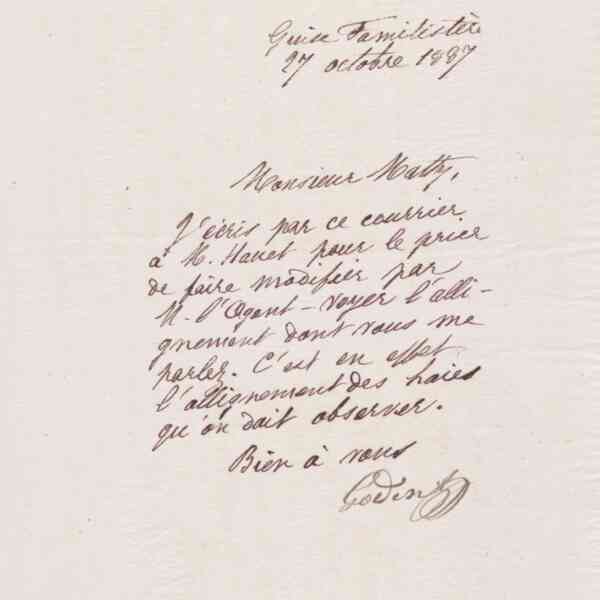 Guise Familistère
27 octobre 1887
Monsieur Mathy,
J'écris par ce courrier
à M. Hauet pour le prier
de faire modifier par
M. l'Agent-voyer l'alli-
gnement dont vous me
parlez. C'est en effet
l'allignement des haies
qu'on doit observer.
Bien à vous
Godin